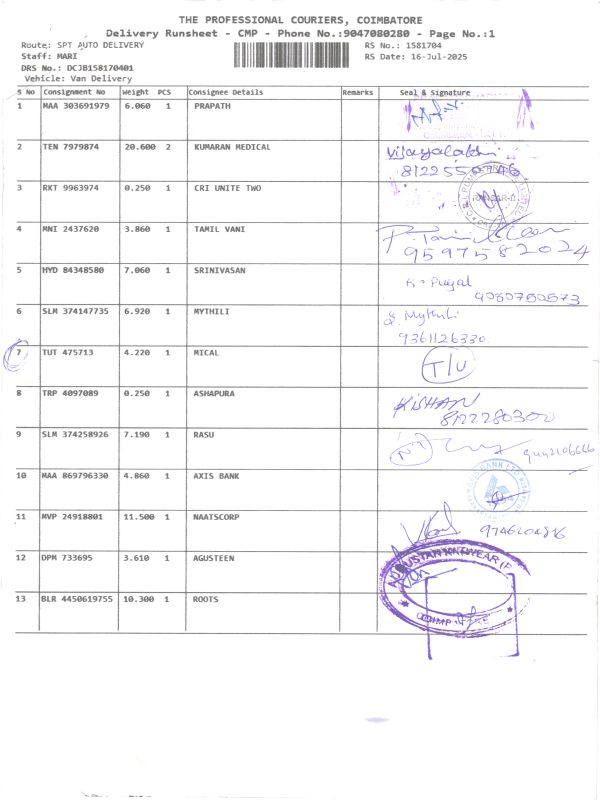 THE PROFESSIONAL COURIERS, COIMBATORE
Delivery Runsheet - CMP - Phone No.:9047080280 - Page No.:1
Route: SPT AUTO DELIVERY RS No.: 1581704
Staff: MARI RS Date: 16-Jul-2025
DRS No.: DCJB158170401
Vehicle: Van Delivery
S No Consignment No Weight PCS Consignee Details Remarks Seal & Signature
1 MAA 303691979 6.060 1 PRAPATH
2 TEN 7979874 20.600 2 KUMARAN MEDICAL
3 RKT 9963974 0.250 1 CRI UNITE TWO
4 MNI 2437620 3.860 1 TAMIL VANI
9597582024
5 HYD 84348580 7.060 1 SRINIVASAN
6 SLM 374147735 6.920 1 MYTHILI
9361126330
7 TUT 475713 4.220 1 MICAL T/U
8 TRP 4097089 0.250 1 ASHAPURA KISHAN
8122280300
9 SLM 374258926 7.190 1 RASU
10 MAA 869796330 4.860 1 AXIS BANK
11 MVP 24918801 11.500 1 NAATSCORP
12 DPM 733695 3.610 1 AGUSTEEN
13 BLR 4450619755 10.300 1 ROOTS